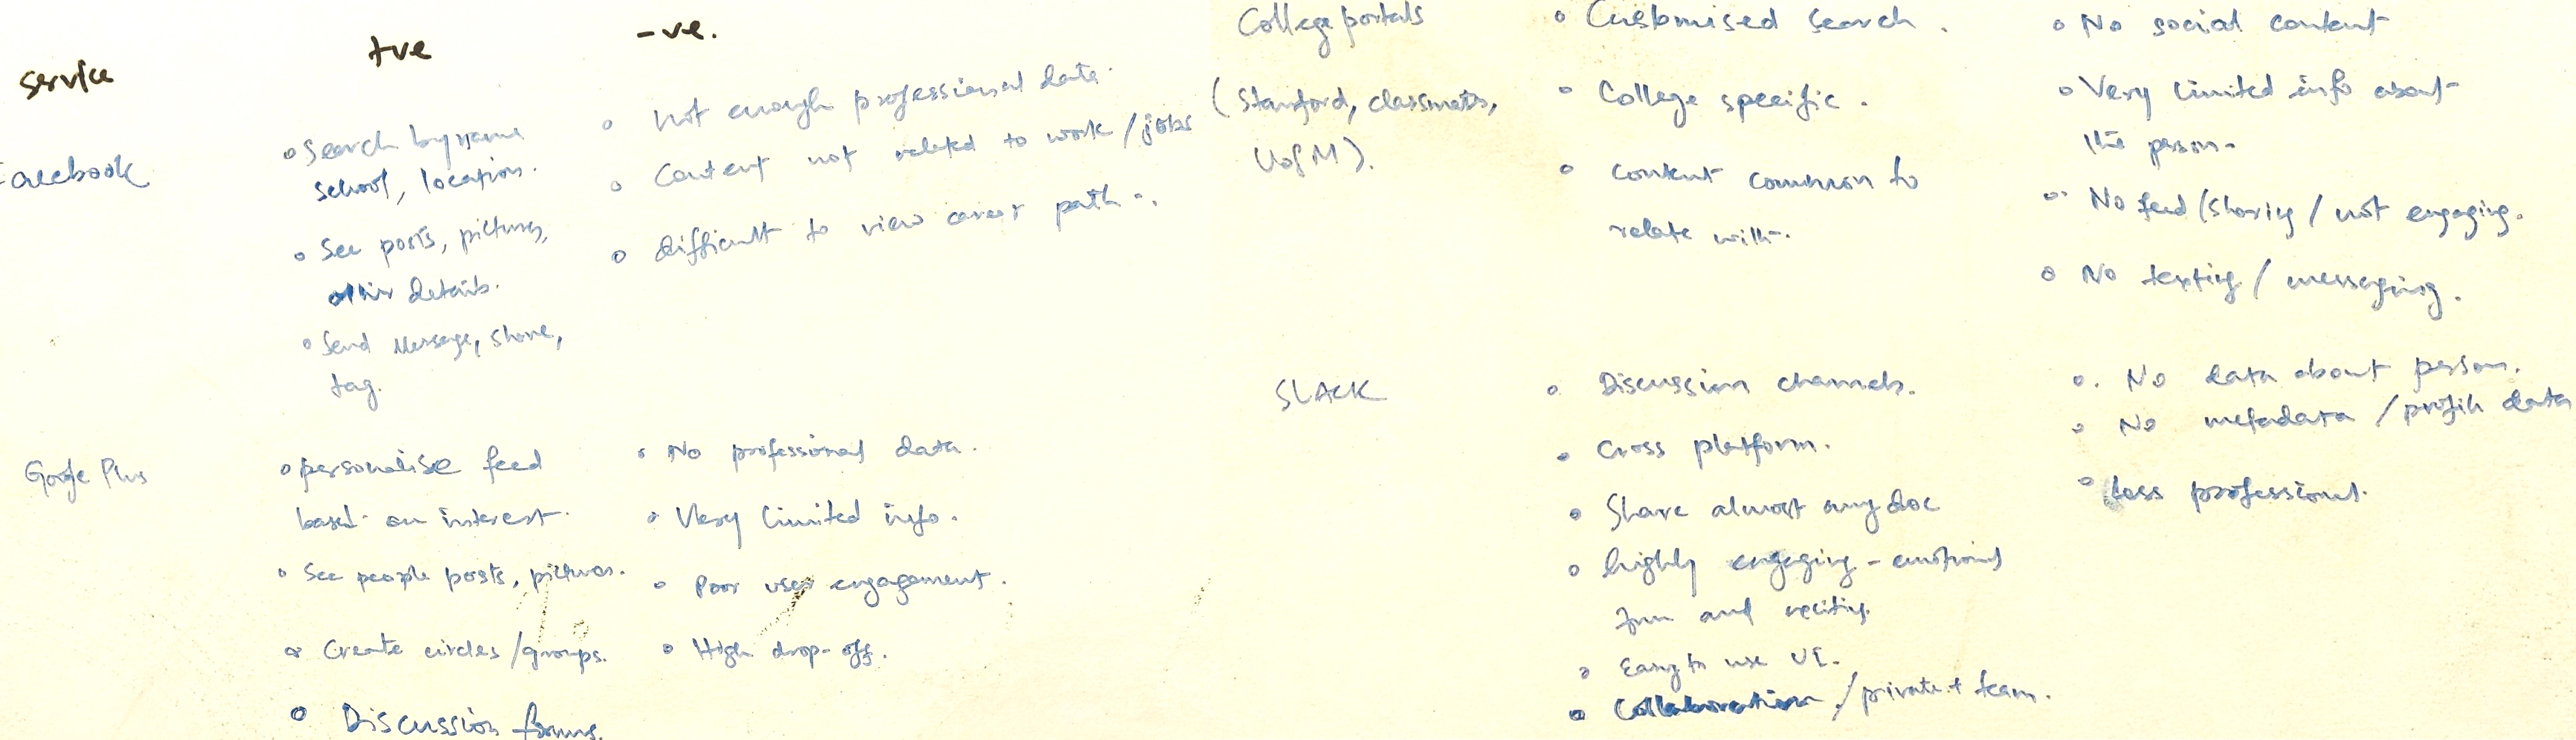 service +ve -ve.
Facebook
o Search by name
school, location.
o See posts, pictures,
other details.
o Send Message, share,
tag.
o Not enough professional data.
o Content not related to work/jobs
o difficult to view career path.
Google Plus
o personalise feed
based on interest.
o See people posts, pictures.
o Create circles/groups.
o Discussion forums.
o No professional data.
o Very limited info.
o Poor user engagement.
o High drop-off.
College portals
(Stanford, classmates,
UofM).
o Customised search.
o College specific.
o content common to
relate with.
o No social content
o Very limited info about
the person.
o No feed/sharing/not engaging.
o No texting/messaging.
SLACK
o Discussion channels.
o Cross platform.
o Share almost any doc
o highly engaging - emotional
fun and
o Easy to use UI.
o Collaboration/private team.
o. No data about person.
o No metadata/profile data
o less professional.